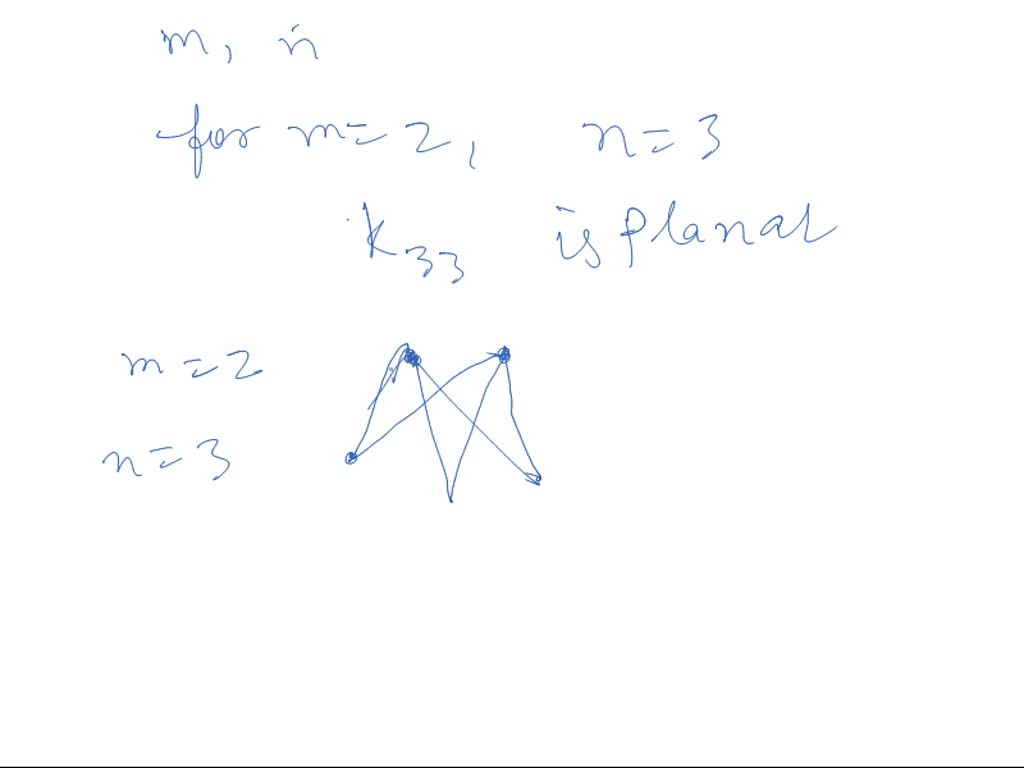 m, n
for m = 2, n = 3
K33 is planar
m = 2
n = 3